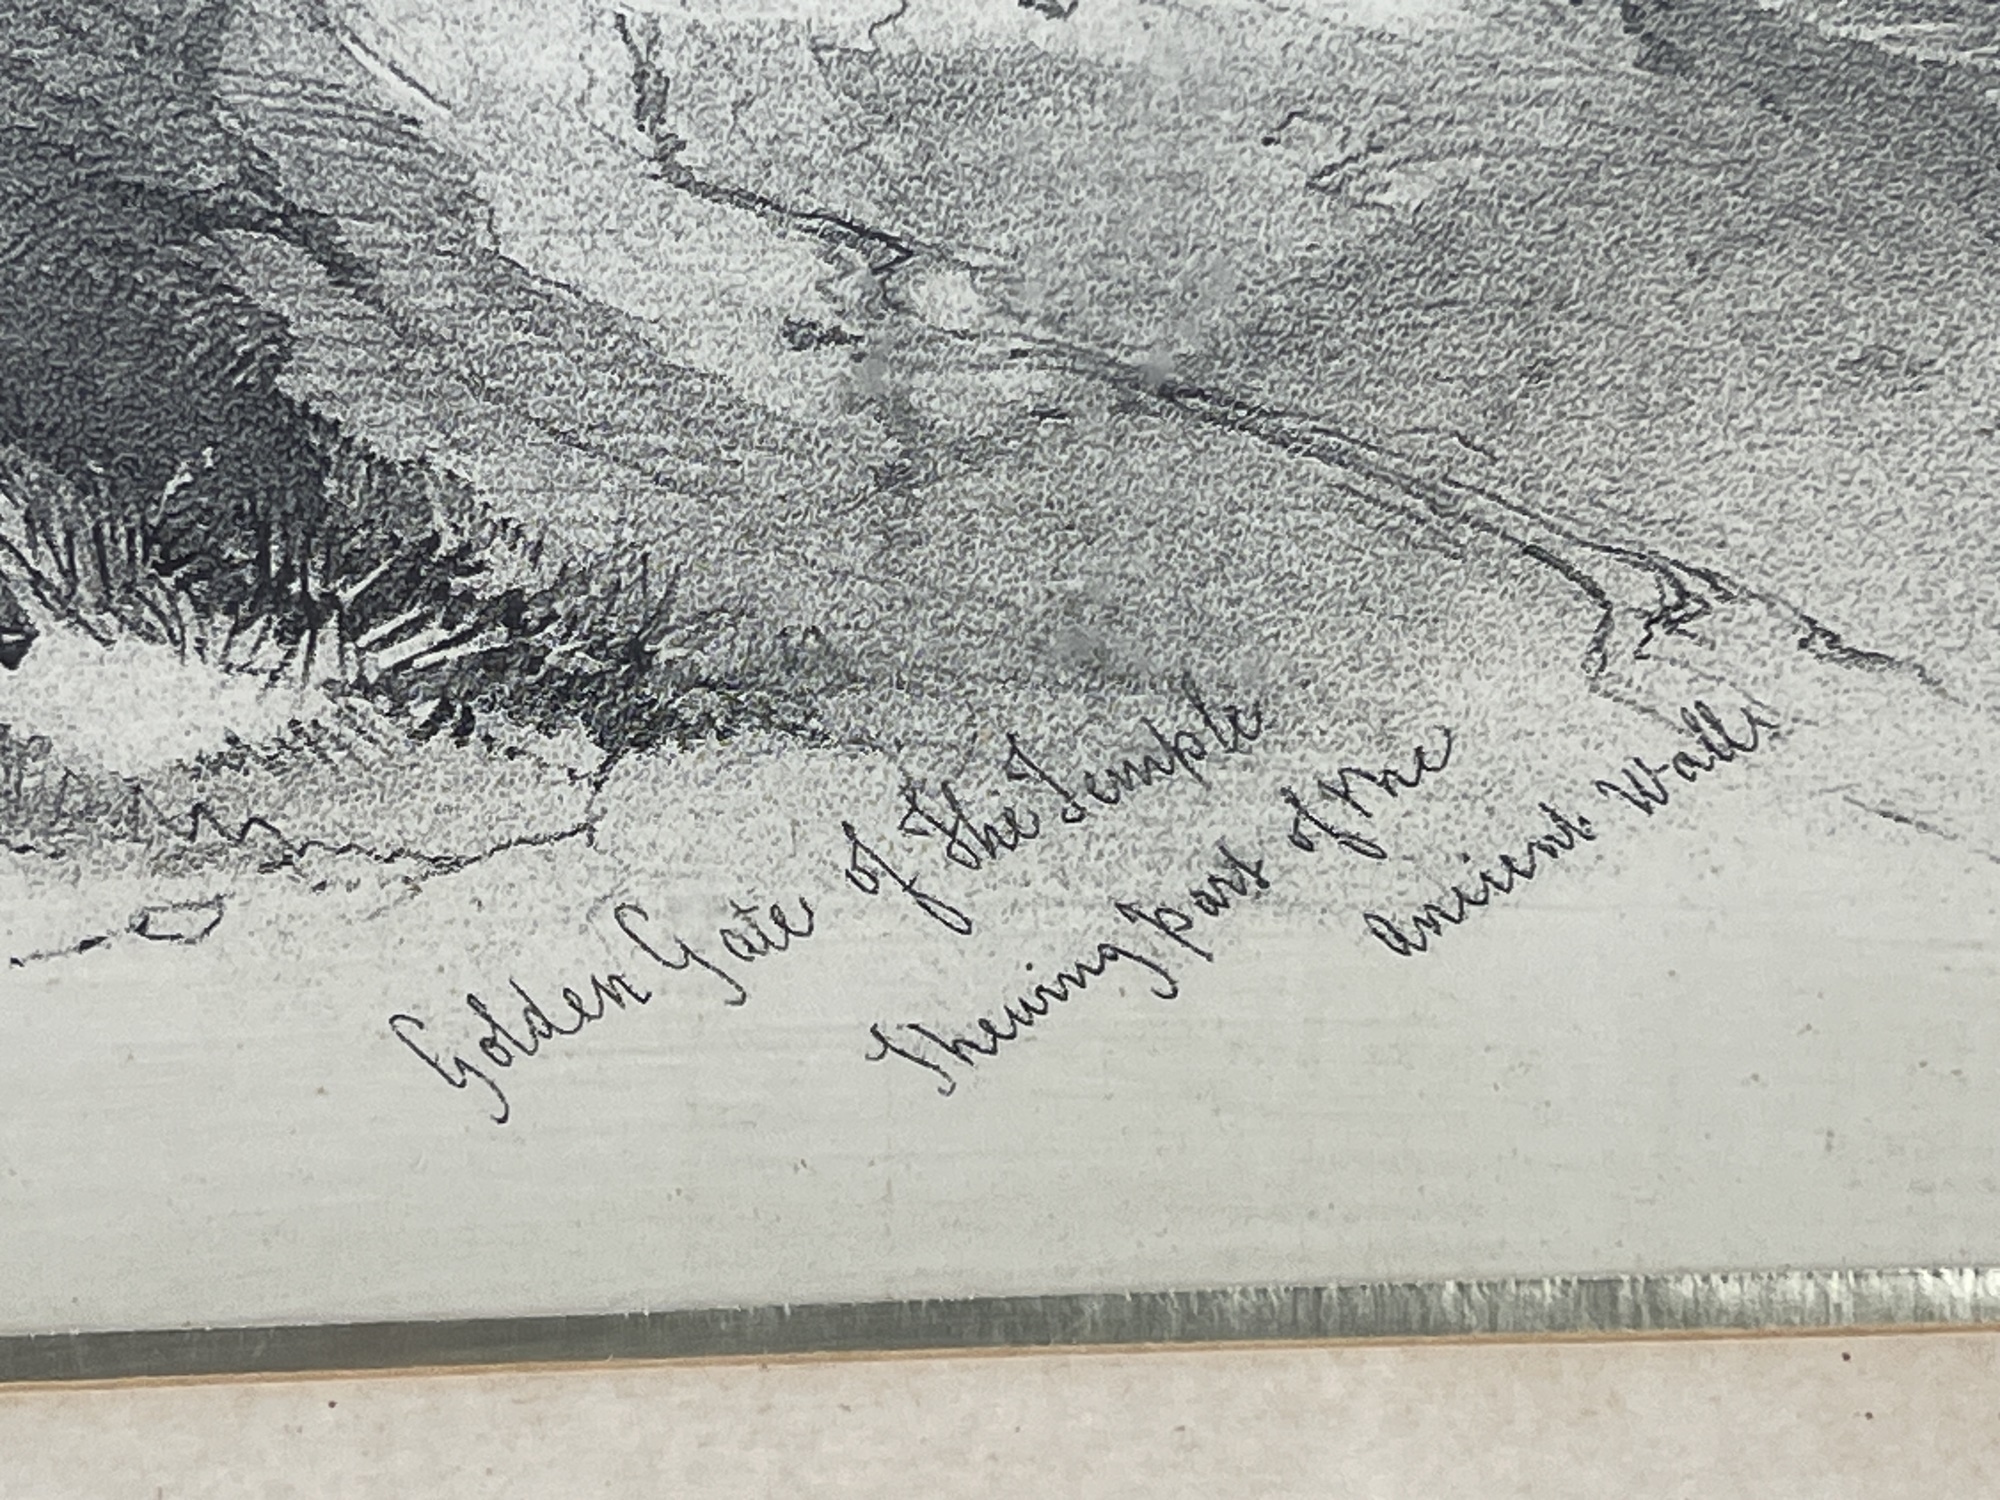 Golden Gate of the Temple
Shewing part of the
ancient Walls